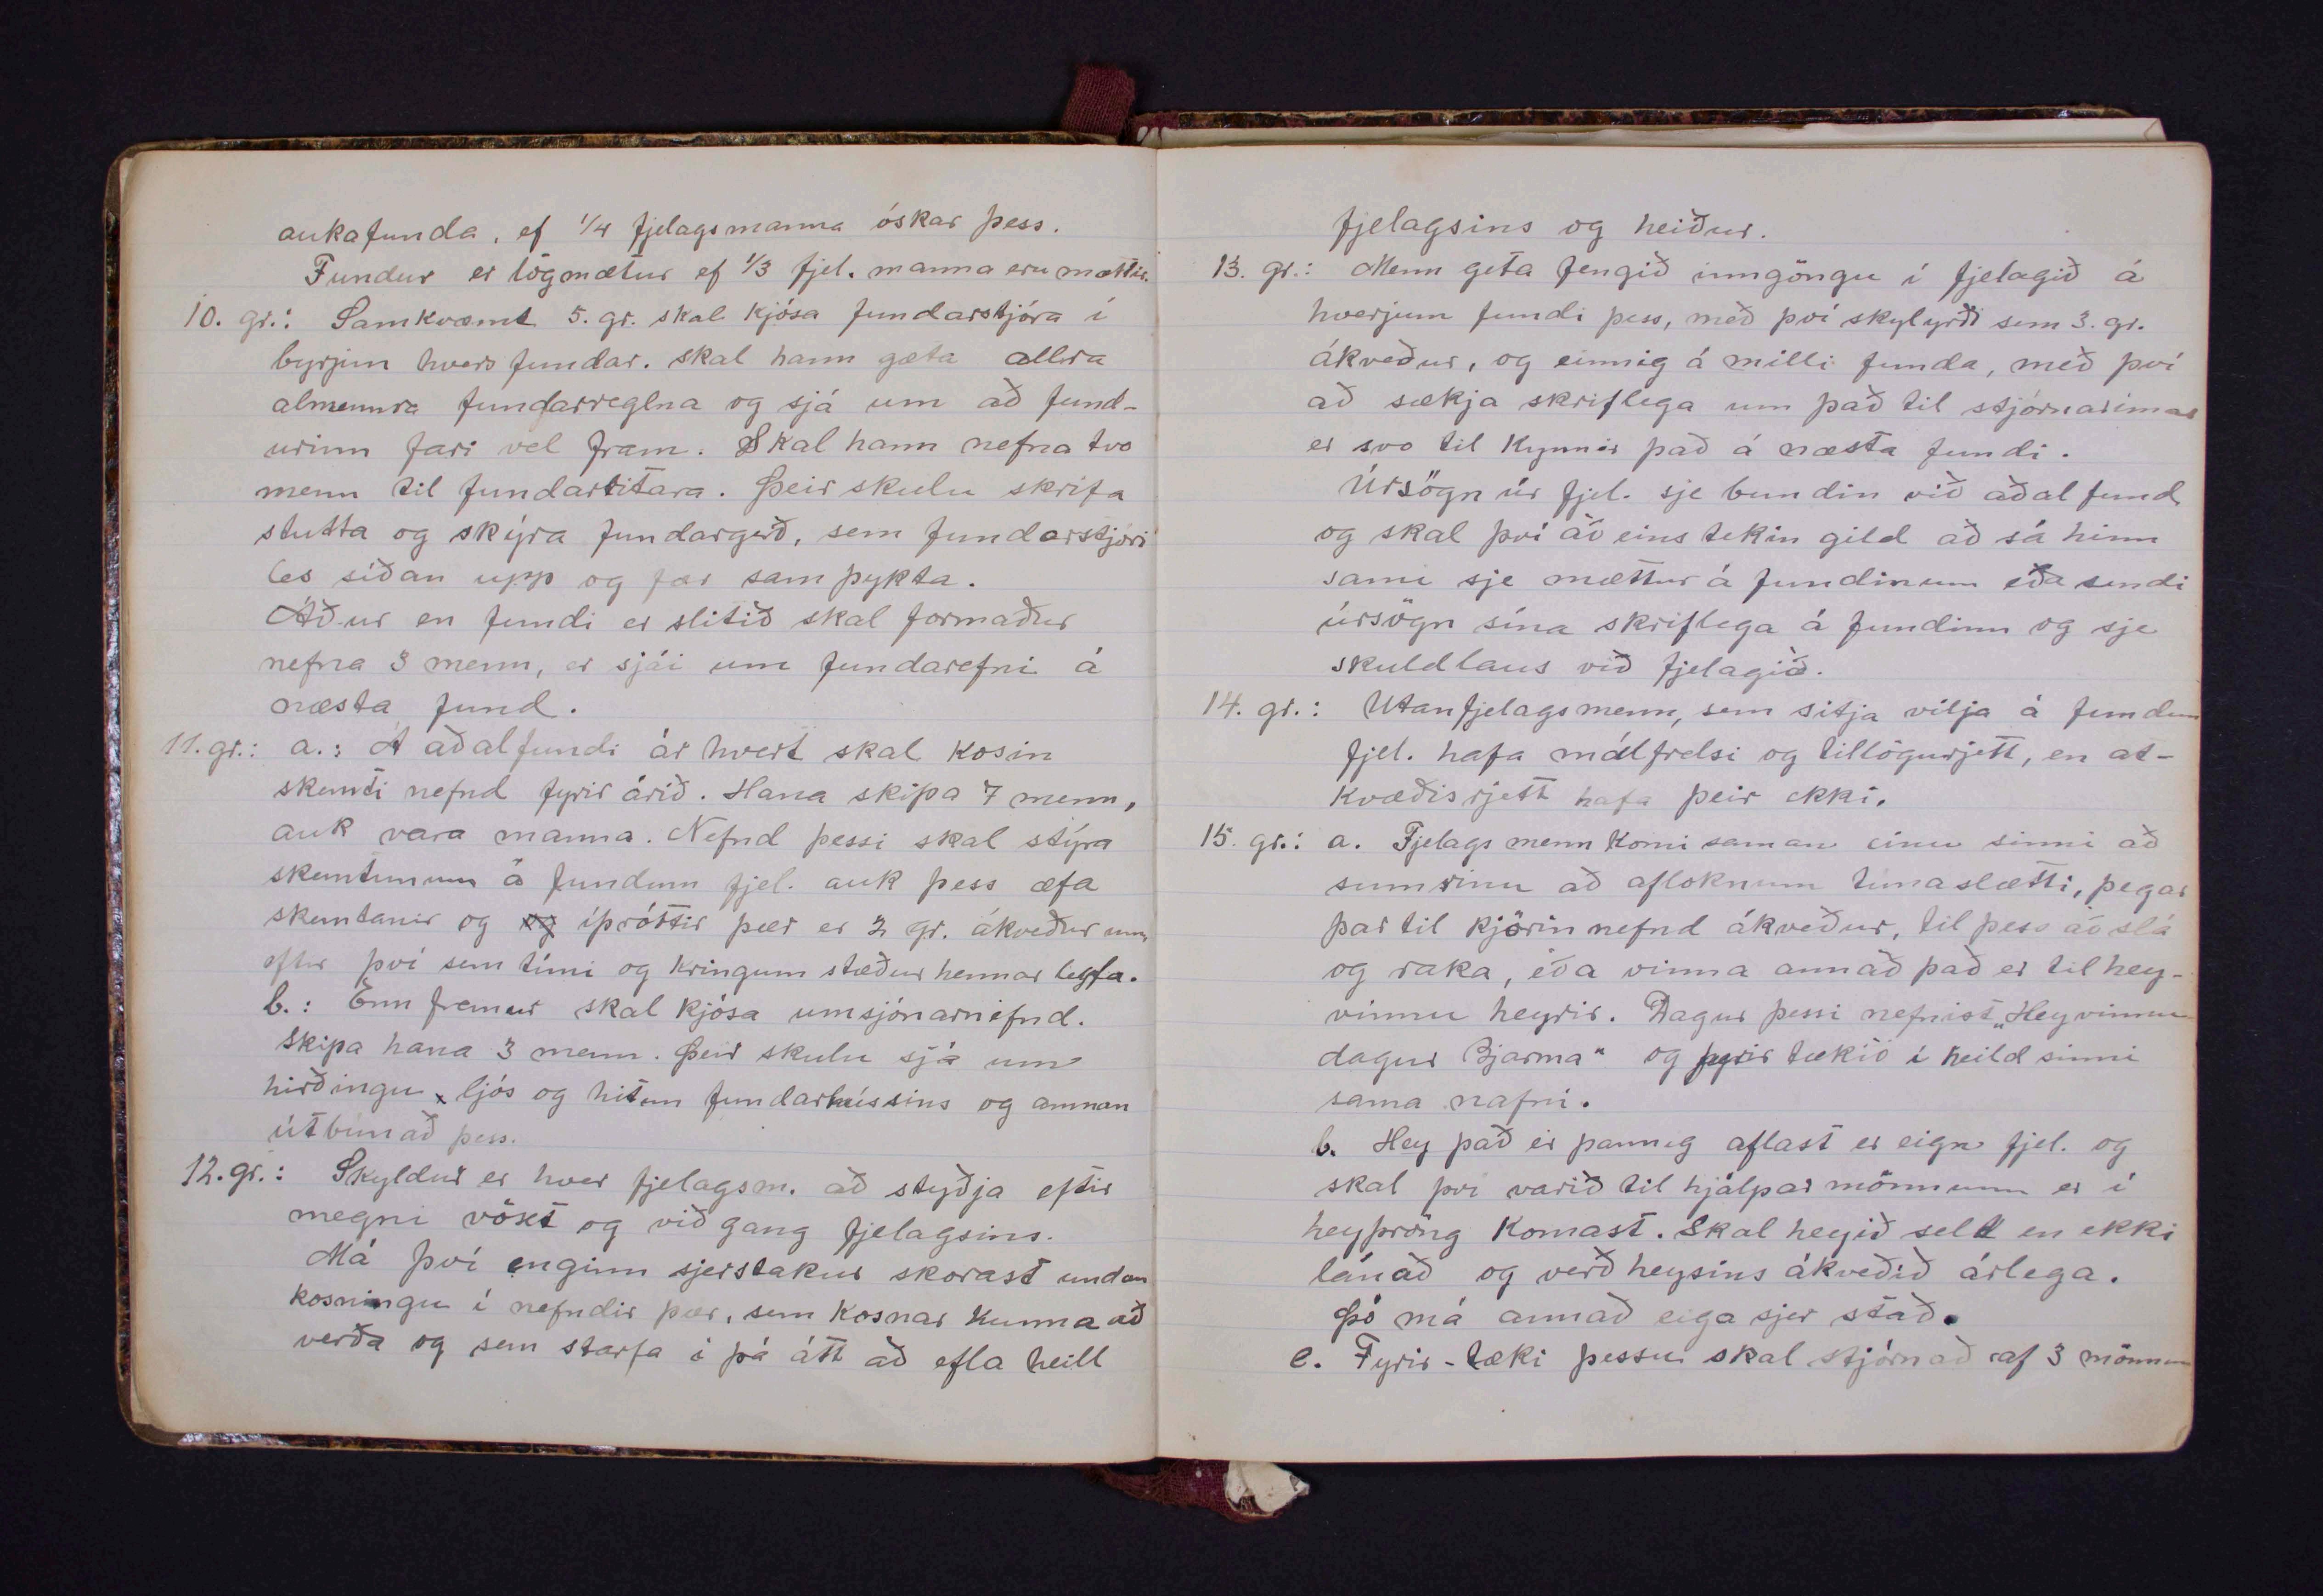 aukafunda, ef 1/4 fjelagsmanna óskar þess.
Fundur er lögmætur ef 1/3 fjel. manna eru mættir.
10. gr.: Samkvæmt 5. gr. skal kjósa fundarstjóra í
byrjun hvers fundar. skal hann gæta allra
almennra fundarreglna og sjá um að fund-
urinn fari vel fram. Skal hann nefna tvo
menn til fundarritara. Þeir skulu skrifa
stutta og skýra fundargerð, sem fundarstjóri
les síðan upp og fær samþykta.
Áður en fundi er slitið skal formaður
nefna 3 menn, er sjái um fundarefni á
næsta fund.
11. gr.: a.: Á aðalfundi ár hvert skal kosin
skemti nefnd fyrir árið. Hana skipa 7 menn,
auk vara manna. Nefnd þessi skal stýra
skemtunum á fundum fjel. auk þess æfa
skemtanir og og íþróttir þær er 2 gr. ákveður um,
eftir því sem tími og kringumstæður hennar leyfa.
b.: Enn fremur skal kjósa umsjónarnefnd.
Skipa hana 3 menn. Þeir skulu sjá um
hirðingu, ljós og hitun fundarhússins og annan
útbúnað þess.
12. gr.: Skyldur er hver fjelagsm. að styðja eftir
megni vöxt og viðgang fjelagsins.
Má því enginn sjerstakur skorast undan
kosningu í nefndir þær, sem kosnar kunna að
verða og sem starfa í þá átt að efla heill
fjelagsins og heiður.
13. gr.: Menn geta fengið inngöngu í fjelagið á
hverjum fundi þess, með því skylyrði sem 3. gr.
ákveður, og einnig á milli funda, með því
að sækja skriflega um það til stjórnarinnar
er svo til kynnir það á næsta fundi.
Úrsögn úr fjel. sje bundin við aðalfund
og skal því að eins tekin gild að sá hinn
sami sje mættur á fundinum eða sendi
úrsögn sína skriflega á fundinn og sje
skuldlaus við fjelagið.
14. gr.: Utanfjelagsmenn, sem sitja vilja á fundum
fjel. hafa málfrelsi og tillögurjett, en at-
kvæðisrjett hafa þeir ekki.
15. gr.: a. Fjelagsmenn komi saman einu sinni að
sumrinu að afloknum túnaslætti, þegar
þar til kjörin nefnd ákveður, til þess að slá
og raka, eða vinna annað það er til hey-
vinnu heyrir. Dagur þessi nefnist „Heyvinnu
dagur Bjarma" og fyrirtækið í heild sinni
sama nafni.
b. Hey það er þannig aflast er eign fjel. og
skal því varið til hjálpar mönnum er í
heyþröng komast. Skal heyið selt en ekki
lánað og verð heysins ákveðið árlega.
Þó má annað eiga sjer stað.
c. Fyrir-tæki þessu skal stjórnað af 3 mönnum